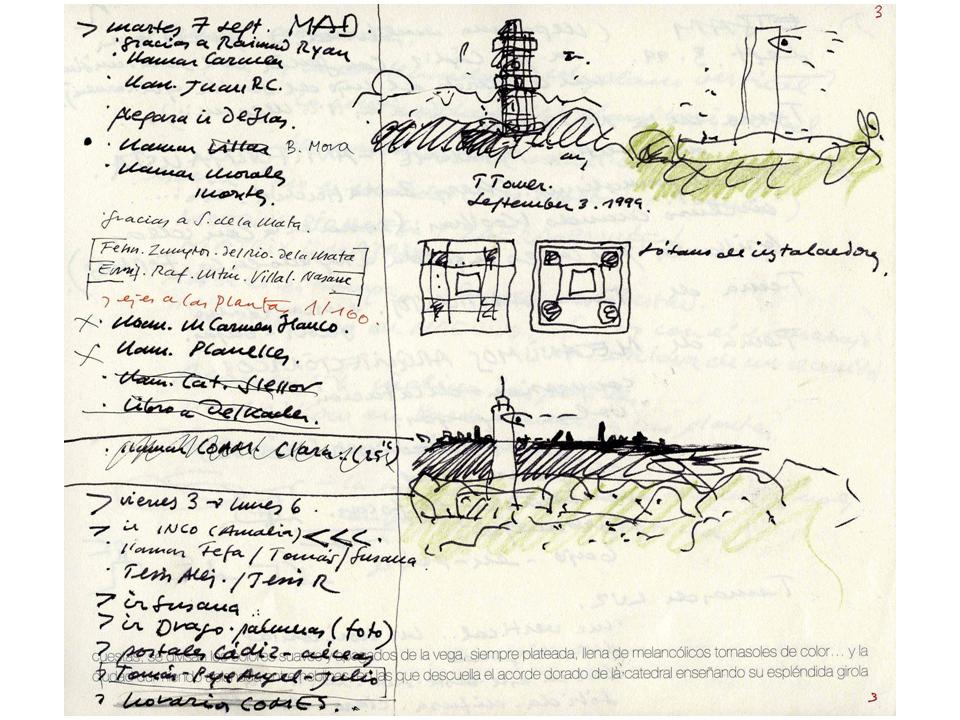 3
> martes 7 sept. MAD.
· gracias a Raimund Ryan
· llamar Carmen
· llam. Juan R.C.
prepara ir
· llamar B. Mora
· llamar Morales
martes.
gracias a S. de la Mata.
Fern. Zumptor. del Rio. de la Mata
Raf. Mtín. Villal. Navarre
> ejes a las Plantas 1/100.
x llam. M Carmen Franco.
x llam. Planelles.
· llam. Cat.
· libro a
· COAM Clara
> viernes 3 → lunes 6.
> ir INCO (Amalia) <<<.
· llamar Fefa / Tomás / Susana
· Tesis Alej. / Tesis R
> ir Susana
> ir Drago · palmeras (foto)
> postales Cádiz - aéreas
Tomás Pepe Angel Julio
> horario CODES..
T Tower.
September 3. 1999.
sótano de instalaciones.
de la vega, siempre plateada, llena de melancólicos tornasoles de color… y la
las que descuella el acorde dorado de la catedral enseñando su espléndida girola
3